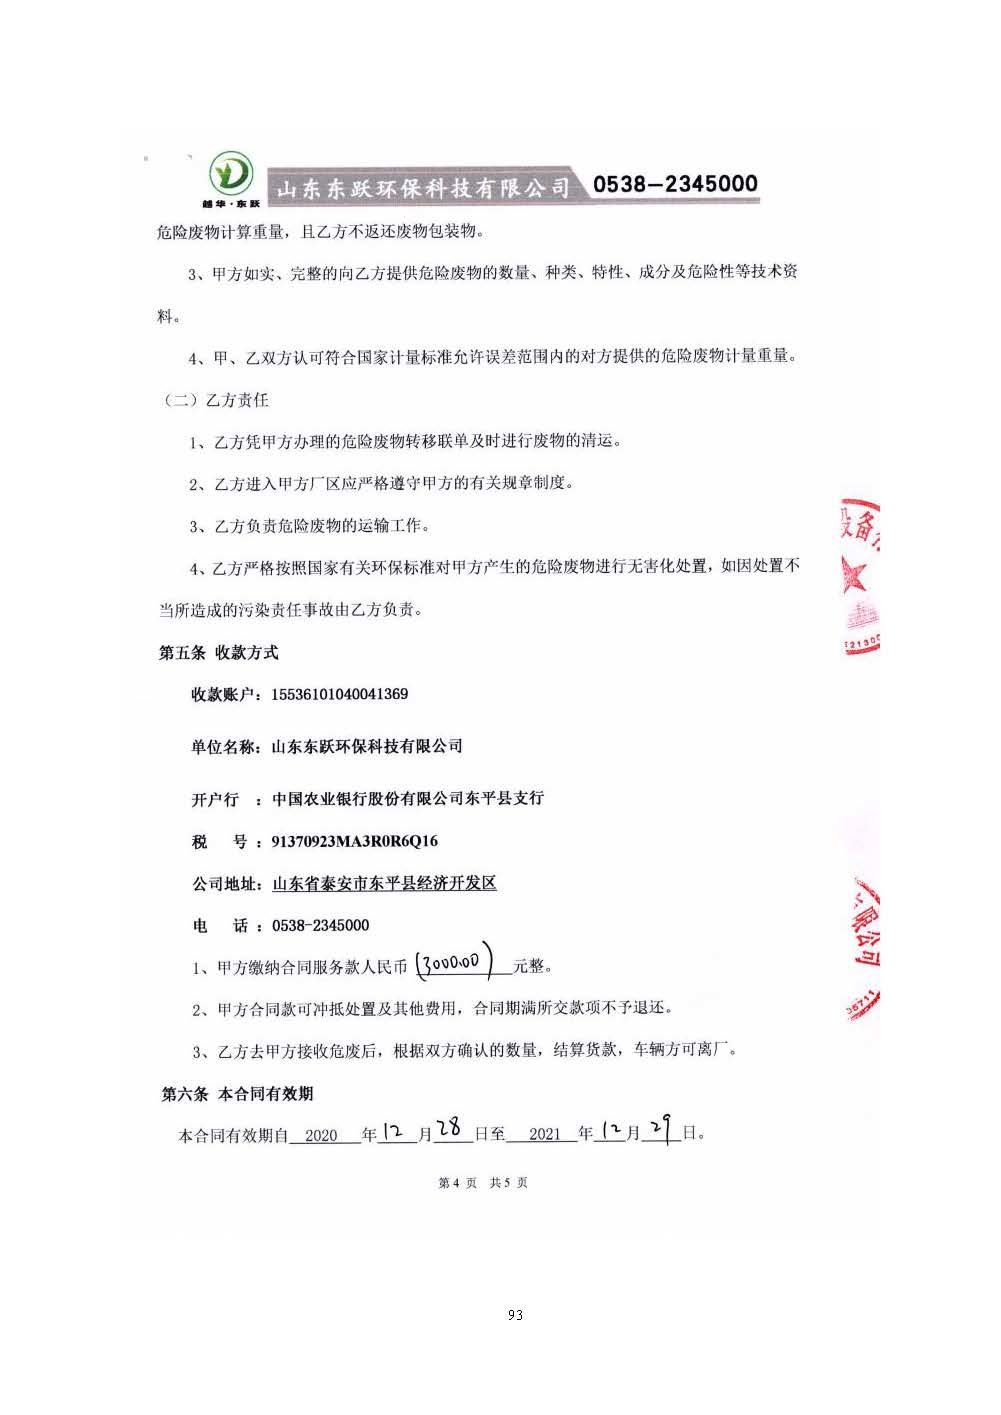 越华·东跃
山东东跃环保科技有限公司 0538-2345000
危险废物计算重量，且乙方不返还废物包装物。
3、甲方如实、完整的向乙方提供危险废物的数量、种类、特性、成分及危险性等技术资
料。
4、甲、乙双方认可符合国家计量标准允许误差范围内的对方提供的危险废物计量重量。
（二）乙方责任
1、乙方凭甲方办理的危险废物转移联单及时进行废物的清运。
2、乙方进入甲方厂区应严格遵守甲方的有关规章制度。
3、乙方负责危险废物的运输工作。
4、乙方严格按照国家有关环保标准对甲方产生的危险废物进行无害化处置，如因处置不
当所造成的污染责任事故由乙方负责。
设备
第五条 收款方式
收款账户：15536101040041369
单位名称：山东东跃环保科技有限公司
开户行 ：中国农业银行股份有限公司东平县支行
税 号：91370923MA3R0R6Q16
公司地址：山东省泰安市东平县经济开发区
电 话：0538-2345000
限公司
1、甲方缴纳合同服务款人民币(3000.00)元整。
2、甲方合同款可冲抵处置及其他费用，合同期满所交款项不予退还。
3、乙方去甲方接收危废后，根据双方确认的数量，结算货款，车辆方可离厂。
第六条 本合同有效期
本合同有效期自 2020 年 12 月 28 日至 2021 年 12 月 29 日。
第 4 页 共 5 页
93